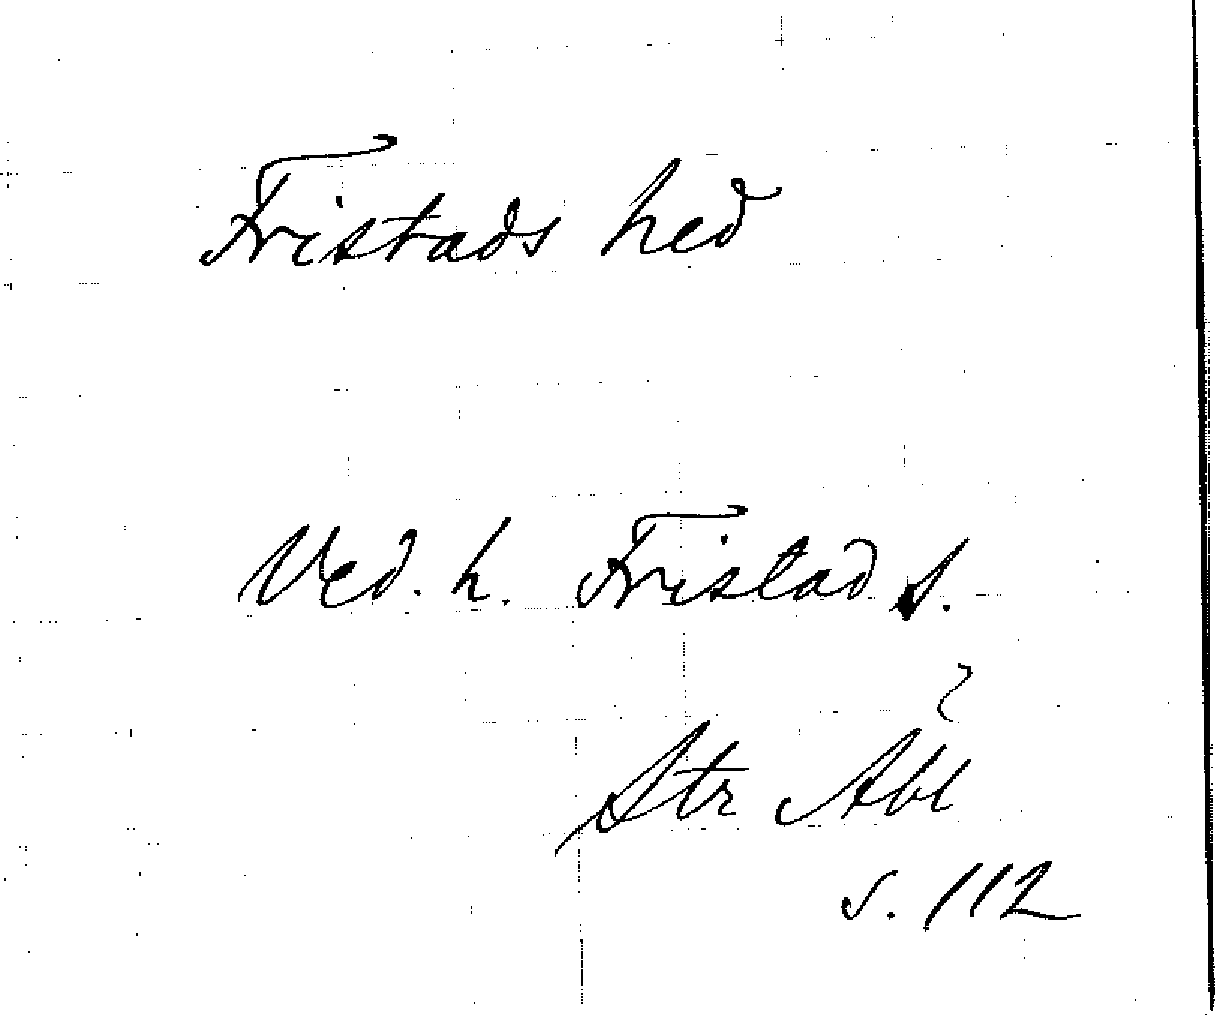 Fristads hed
Ved. h. Fristad s.
Str Åbl
s. 112